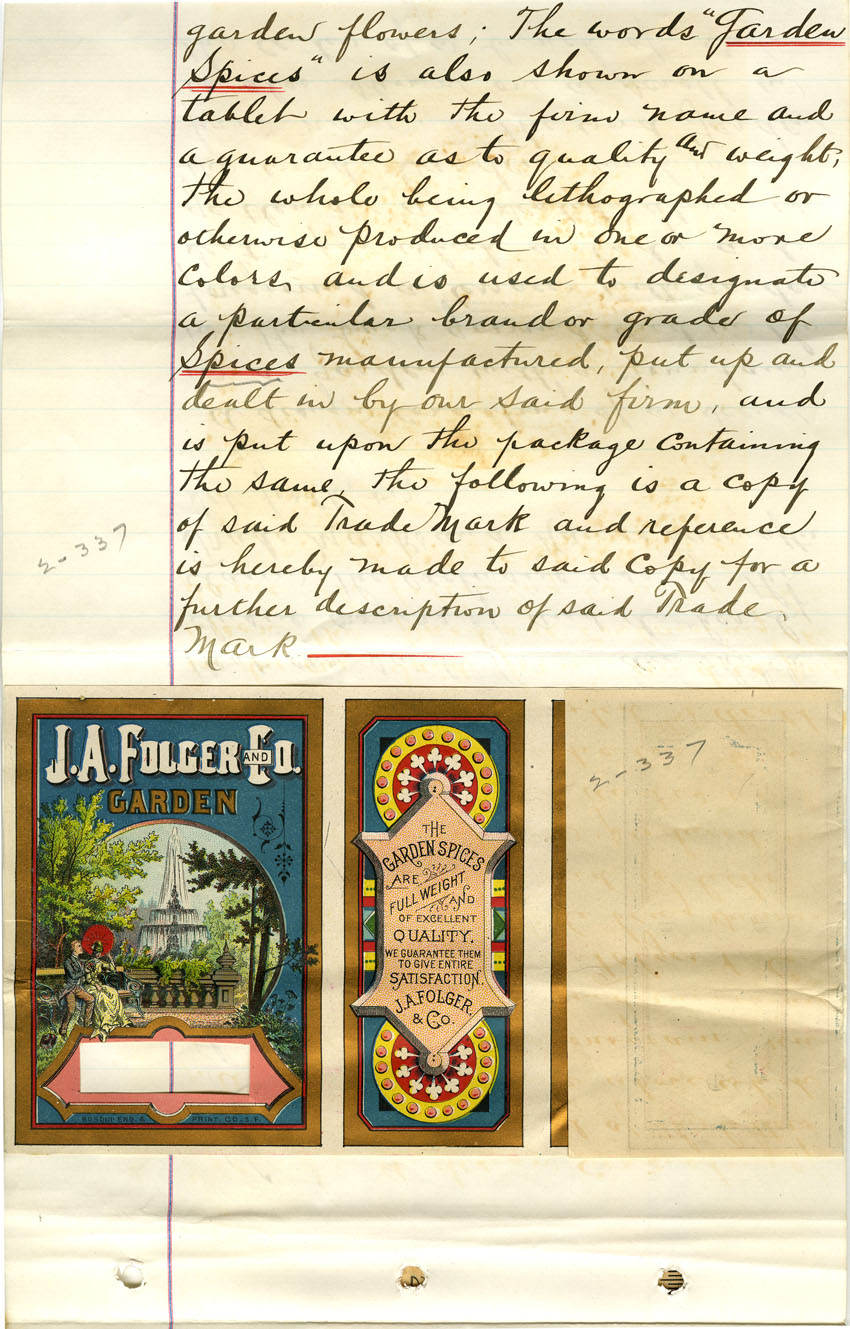 garden flowers; The words "Garden
Spices" is also shown on a
tablet with the firm name and
a guarantee as to quality and weight,
the whole being lithographed or
otherwise produced in one or more
colors, and is used to designate
a particular brand or grade of
Spices manufactured, put up and
dealt in by our said firm, and
is put upon the package containing
the same, the following is a copy
of said Trade Mark and reference
is hereby made to said copy for a
further description of said Trade
Mark
2-337
J.A. FOLGER AND CO.
GARDEN
BOSQUI ENG. & PRINT. CO. S.F.
THE
GARDEN SPICES
ARE
FULL WEIGHT
AND
OF EXCELLENT
QUALITY.
WE GUARANTEE THEM
TO GIVE ENTIRE
SATISFACTION.
J.A. FOLGER.
& CO.
2-337